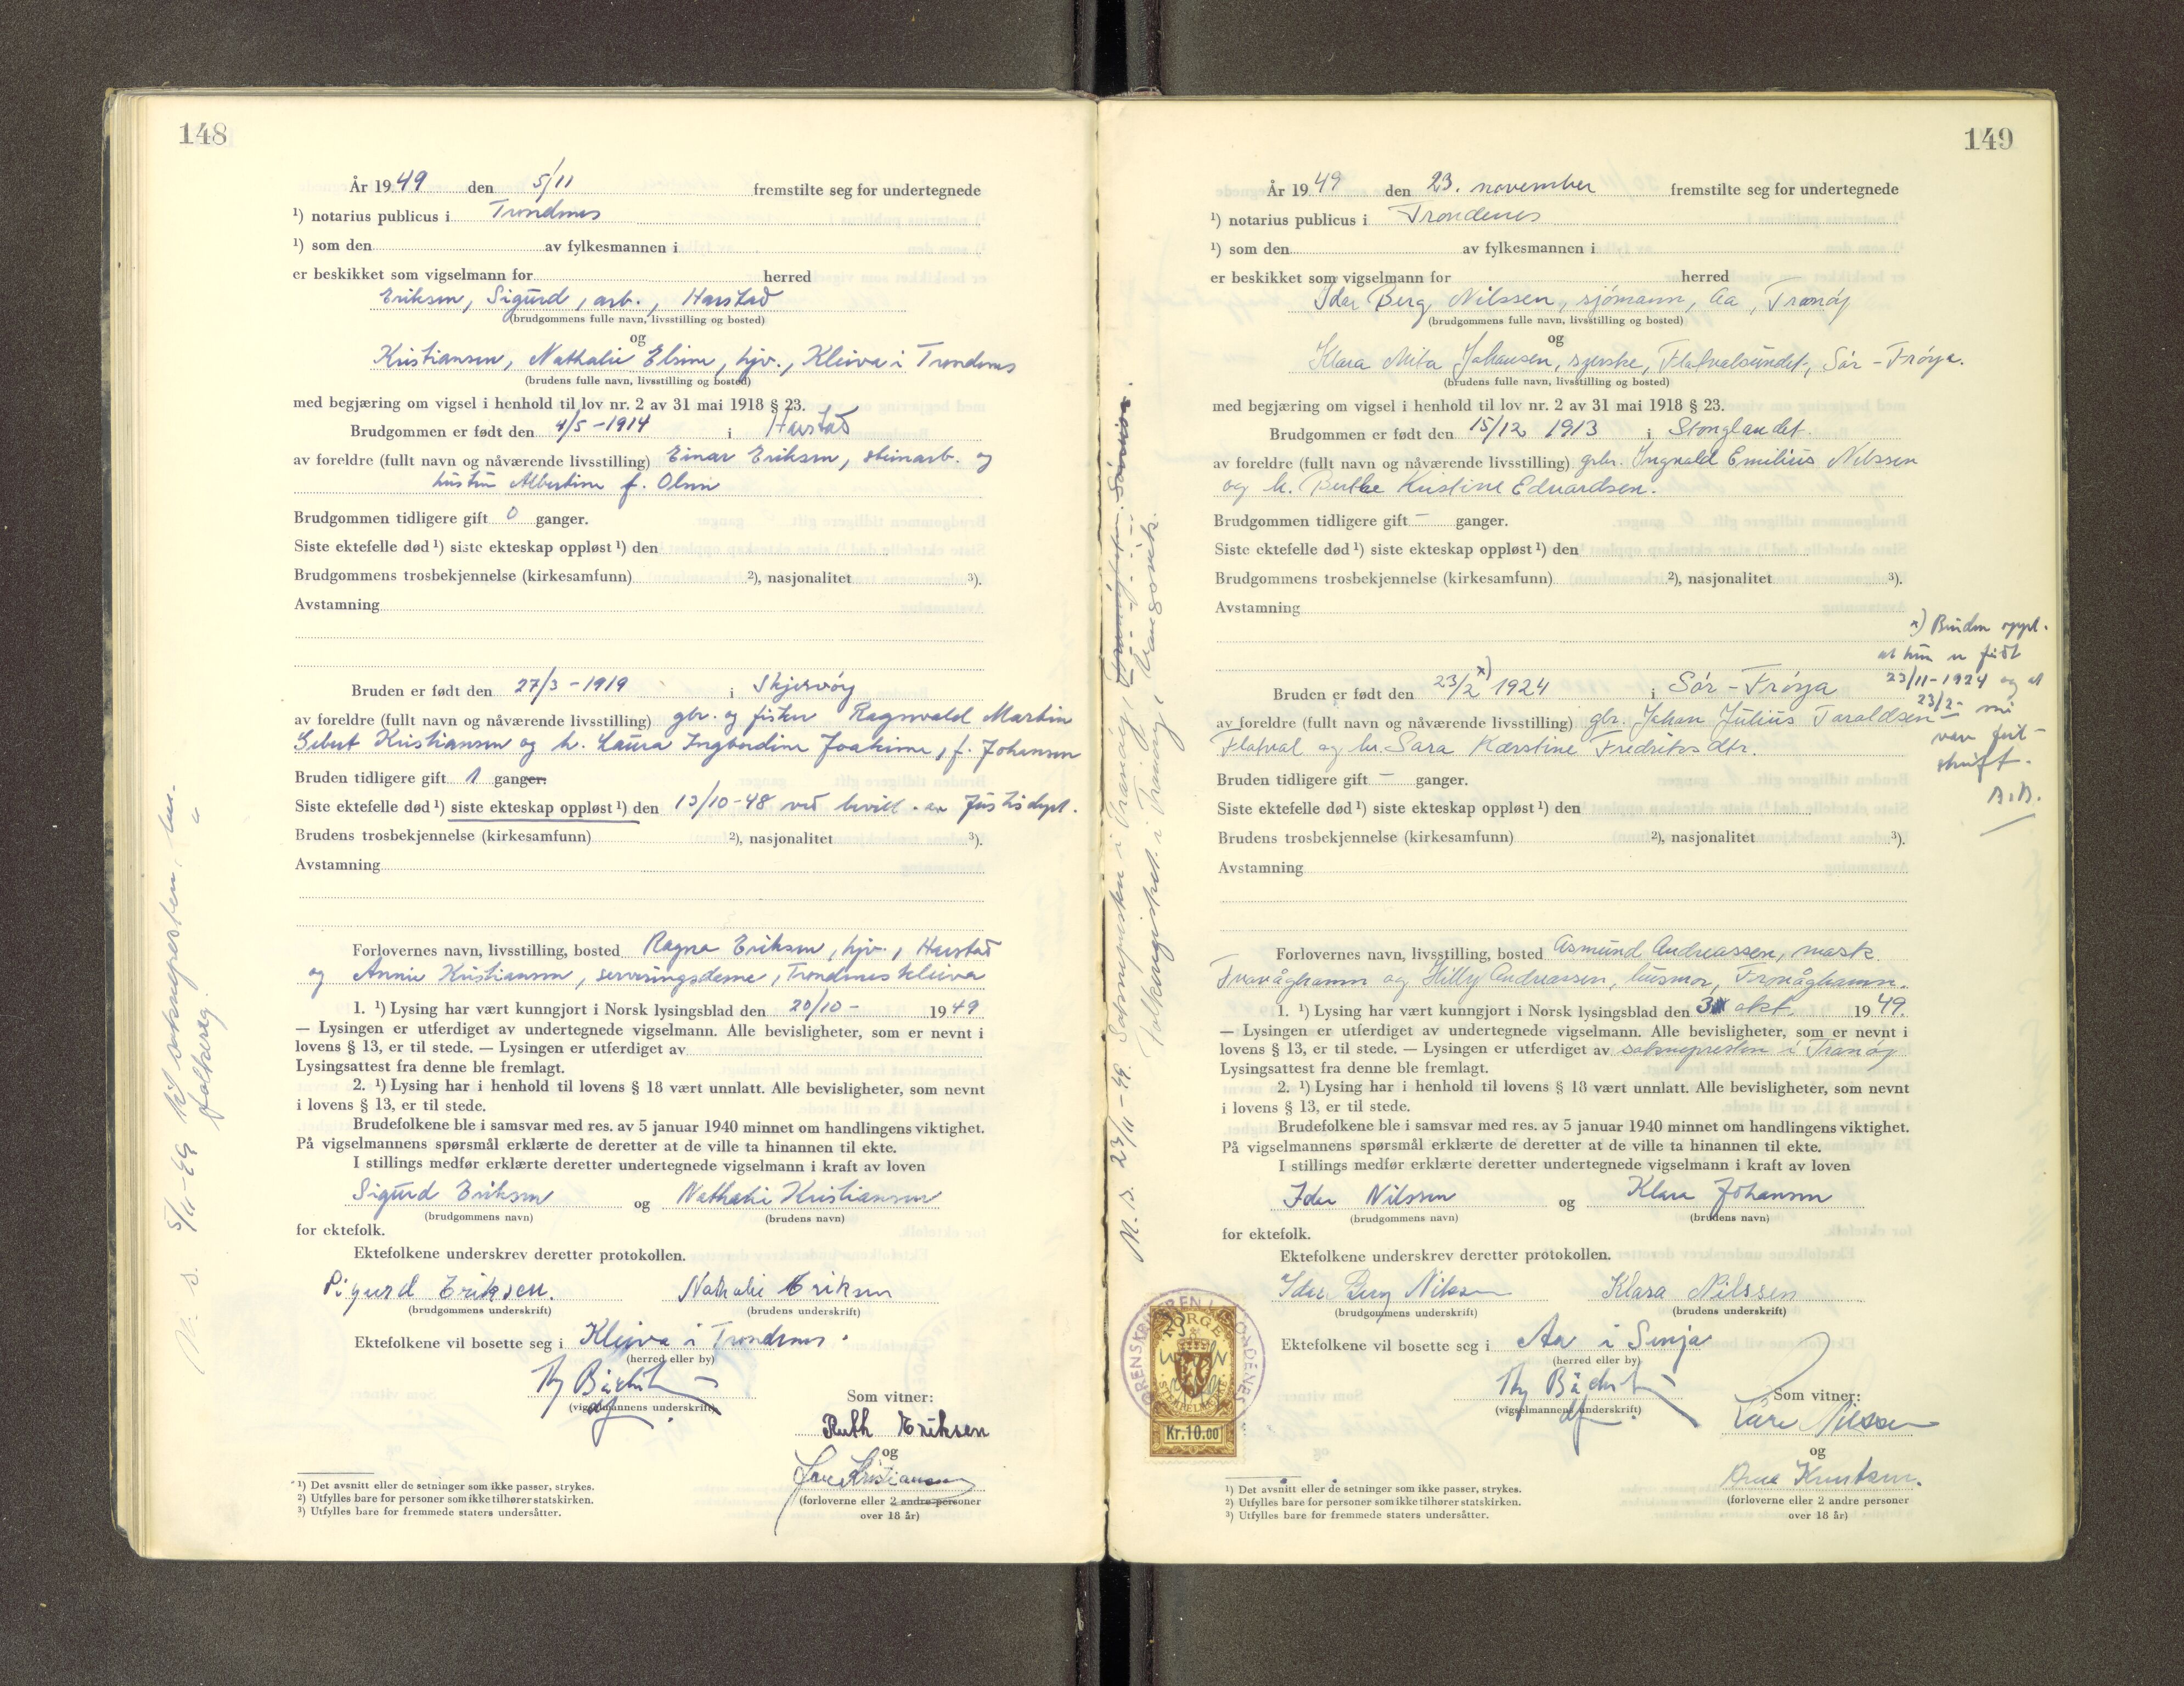 148
År 1949 den 5/11 fremstilte seg for undertegnede
¹) notarius publicus i Trondenes
¹) som den av fylkesmannen i
er beskikket som vigselmann for herred
Eriksen, Sigurd, arb., Harstad
(brudgommens fulle navn, livsstilling og bosted)
og
Kristiansen, Nathalie Elise, hjv., Kleiva i Trondenes
(brudens fulle navn, livsstilling og bosted)
med begjæring om vigsel i henhold til lov nr. 2 av 31 mai 1918 § 23.
Brudgommen er født den 4/5 - 1914 i Harstad
av foreldre (fullt navn og nåværende livsstilling) Einar Eriksen, steinarb. og
hustru Albertine f. Olsen
Brudgommen tidligere gift 0 ganger.
Siste ektefelle død ¹) siste ekteskap oppløst ¹) den
Brudgommens trosbekjennelse (kirkesamfunn) ²), nasjonalitet ³).
Avstamning
Bruden er født den 27/3 - 1919 i Skjervøy
av foreldre (fullt navn og nåværende livsstilling) gbr. og fisker Ragnvald Martin
Sibert Kristiansen og h. Laura Ingbordine Joakime, f. Johansen
Bruden tidligere gift 1 ganger.
Siste ektefelle død ¹) siste ekteskap oppløst ¹) den 13/10-48 ved bevill. av Justisdept.
Brudens trosbekjennelse (kirkesamfunn) ²), nasjonalitet ³).
Avstamning
Forlovernes navn, livsstilling, bosted Ragna Eriksen, hjv., Harstad
og Annie Kristiansen, serveringsdame, Trondenes Kleiva
1. ¹) Lysing har vært kunngjort i Norsk lysingsblad den 20/10 - 1949
— Lysingen er utferdiget av undertegnede vigselmann. Alle bevisligheter, som er nevnt i
lovens § 13, er til stede. — Lysingen er utferdiget av
Lysingsattest fra denne ble fremlagt.
2. ¹) Lysing har i henhold til lovens § 18 vært unnlatt. Alle bevisligheter, som nevnt
i lovens § 13, er til stede.
Brudefolkene ble i samsvar med res. av 5 januar 1940 minnet om handlingens viktighet.
På vigselmannens spørsmål erklærte de deretter at de ville ta hinannen til ekte.
I stillings medfør erklærte deretter undertegnede vigselmann i kraft av loven
Sigurd Eriksen og Nathalie Kristiansen
(brudgommens navn) (brudens navn)
for ektefolk.
Ektefolkene underskrev deretter protokollen.
Sigurd Eriksen. Nathalie Eriksen
(brudgommens underskrift) (brudens underskrift)
Ektefolkene vil bosette seg i Kleiva i Trondenes.
(herred eller by)
(vigselmannens underskrift)
Som vitner:
Ruth Eriksen
og
Kristiansen
(forloverne eller 2 andre personer
over 18 år)
¹) Det avsnitt eller de setninger som ikke passer, strykes.
²) Utfylles bare for personer som ikke tilhører statskirken.
³) Utfylles bare for fremmede staters undersåtter.
5/11-49 til soknepresten, her.
folkereg.
149
År 1949 den 23. november fremstilte seg for undertegnede
¹) notarius publicus i Trondenes
¹) som den av fylkesmannen i
er beskikket som vigselmann for herred
Idar Berg Nilssen, sjømann, Aa, Tranøy
(brudgommens fulle navn, livsstilling og bosted)
og
Klara Mita Johansen, syerske, Flatvalsundet, Sør-Frøya.
(brudens fulle navn, livsstilling og bosted)
med begjæring om vigsel i henhold til lov nr. 2 av 31 mai 1918 § 23.
Brudgommen er født den 15/12 1913 i Stonglandet.
av foreldre (fullt navn og nåværende livsstilling) gbr. Ingvald Emilius Nilssen
og h. Berthe Kristine Edvardsen.
Brudgommen tidligere gift - ganger.
Siste ektefelle død ¹) siste ekteskap oppløst ¹) den
Brudgommens trosbekjennelse (kirkesamfunn) ²), nasjonalitet ³).
Avstamning
x) Bruden oppl.
at hun er født
23/11-1924 og at
23/2-
var feil-
skrift.
Bruden er født den 23/2 x) 1924 i Sør-Frøya
av foreldre (fullt navn og nåværende livsstilling) gbr. Johan Julius Taraldsen
Flatval og h. Sara Kærstine Fredriksdtr.
Bruden tidligere gift - ganger.
Siste ektefelle død ¹) siste ekteskap oppløst ¹) den
Brudens trosbekjennelse (kirkesamfunn) ²), nasjonalitet ³).
Avstamning
Forlovernes navn, livsstilling, bosted Asmund Andreassen, mask.
og Hilly Andreassen, husmor,
1. ¹) Lysing har vært kunngjort i Norsk lysingsblad den 3 okt. 1949.
— Lysingen er utferdiget av undertegnede vigselmann. Alle bevisligheter, som er nevnt i
lovens § 13, er til stede. — Lysingen er utferdiget av sokneprested i Tranøy
Lysingsattest fra denne ble fremlagt.
2. ¹) Lysing har i henhold til lovens § 18 vært unnlatt. Alle bevisligheter, som nevnt
i lovens § 13, er til stede.
Brudefolkene ble i samsvar med res. av 5 januar 1940 minnet om handlingens viktighet.
På vigselmannens spørsmål erklærte de deretter at de ville ta hinannen til ekte.
I stillings medfør erklærte deretter undertegnede vigselmann i kraft av loven
Idar Nilssen og Klara Johansen
(brudgommens navn) (brudens navn)
for ektefolk.
Ektefolkene underskrev deretter protokollen.
Idar Berg Nilssen Klara Nilssen
(brudgommens underskrift) (brudens underskrift)
Ektefolkene vil bosette seg i Aa i Senja
(herred eller by)
(vigselmannens underskrift)
Som vitner:
Kåre Nilssen
og
Knutsen.
(forloverne eller 2 andre personer
over 18 år)
NORGE
Kr.10.00
¹) Det avsnitt eller de setninger som ikke passer, strykes.
²) Utfylles bare for personer som ikke tilhører statskirken.
³) Utfylles bare for fremmede staters undersåtter.
23/11-49. Sokneprested i Tranøy,
Folkeregistret i Tranøy, Vangsvik.